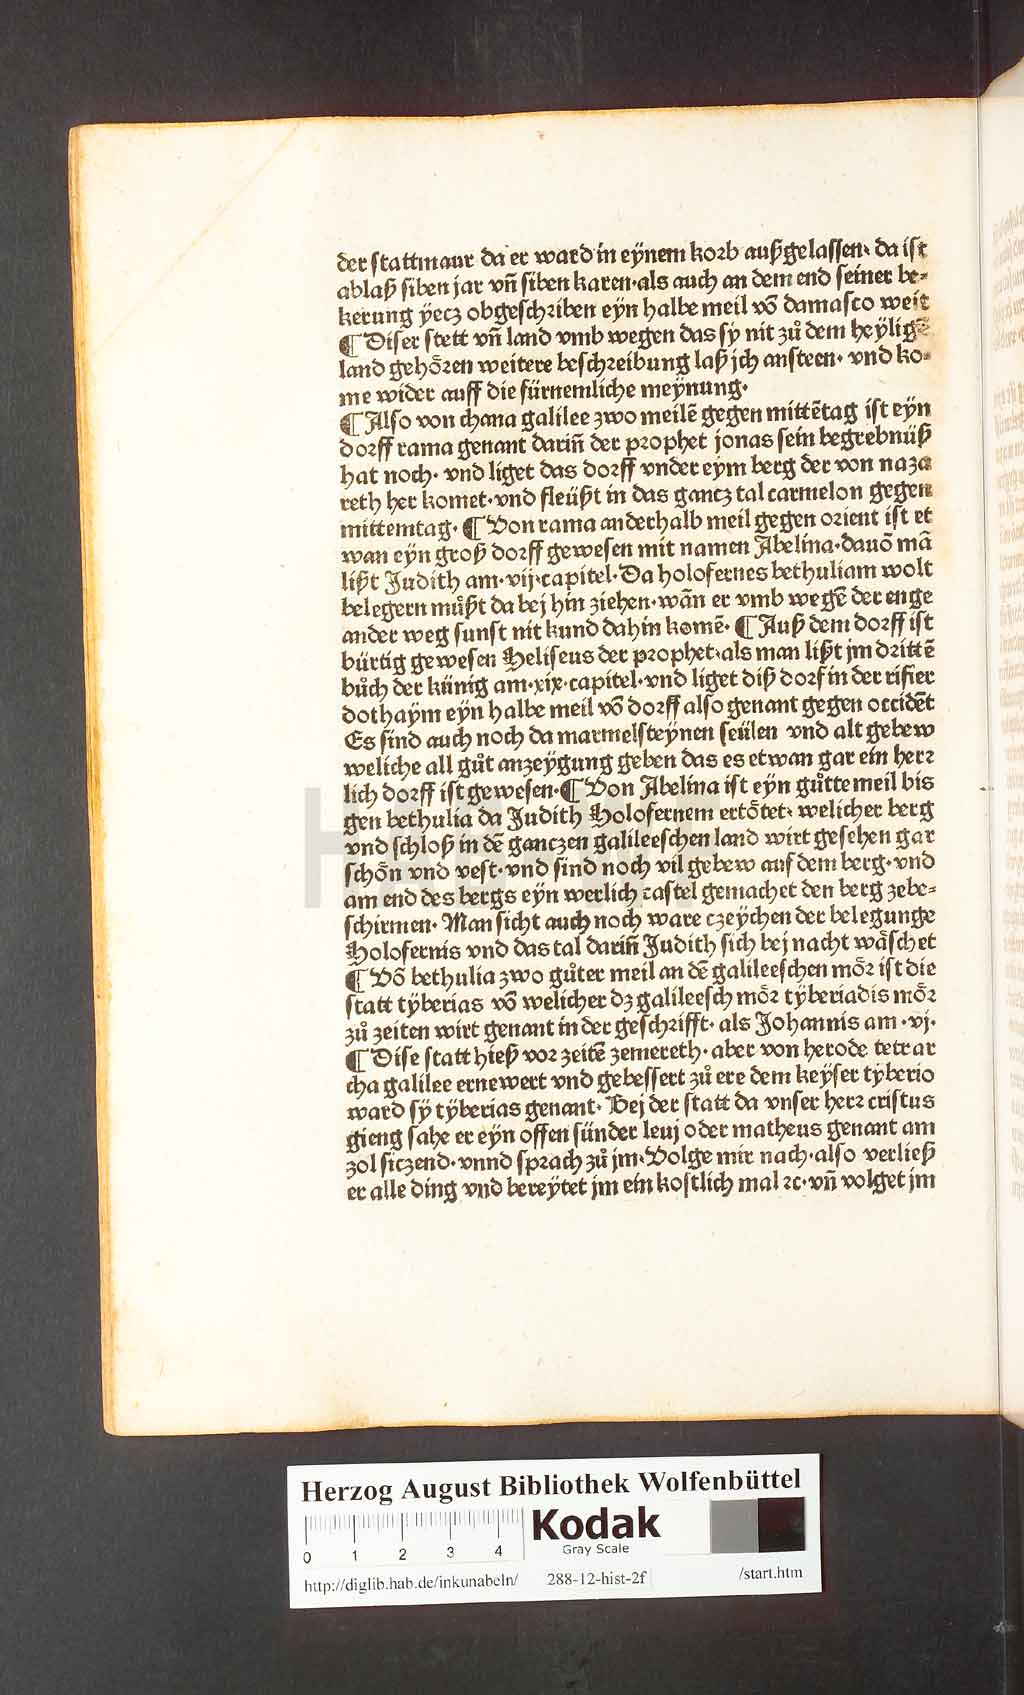 der stattmaur da er ward in eÿnem korb außgelassen· da ist
ablaß siben jar vñ siben karen·als auch an dem end seiner be-
kerung ÿecz obgeschriben eÿn halbe meil võ damasco weit
¶ Diser stett vñ land vmb wegen das sÿ nit zů dem heÿligẽ
land gehören weitere beschreibung laß jch ansteen· vnd ko-
me wider auff die fürnemliche meÿnung·
¶ Also von chana galilee zwo meilẽ gegen mittẽtag ist eÿn
dorff rama genant dariñ der prophet jonas sein begrebnüß
hat noch· vnd liget das dorff vnder eym berg der von naza
reth her komet·vnd fleüßt in das gancz tal carmelon gegen
mittemtag· ¶ Von rama anderhalb meil gegen orient ist et
wan eÿn groß dorff gewesen mit namen Abelina·dauõ mã
lißt Judith am·vij·capitel·Da holofernes bethuliam wolt
belegern můßt da bej hin ziehen·wãn er vmb wegẽ der enge
ander weg sunst nit kund dahin komẽ· ¶ Auß dem dorff ist
bürtig gewesen Heliseus der prophet·als man lißt jm drittẽ
bůch der künig am·xix·capitel·vnd liget diß dorf in der rifier
dothaÿm eÿn halbe meil võ dorff also genant gegen occidẽt
Es sind auch noch da marmelsteÿnen seülen vnd alt gebew
weliche all gůt anzeÿgung geben das es etwan gar ein herr
lich dorff ist gewesen·¶ Von Abelina ist eÿn gůtte meil bis
gen bethulia da Judith Holofernem ertötet· welicher berg
vnd schloß in dẽ ganczen galileeschen land wirt gesehen gar
schön vnd vest·vnd sind noch vil gebew auf dem berg·vnd
am end des bergs eÿn werlich castel gemachet den berg zebe-
schirmen· Man sicht auch noch ware czeÿchen der belegunge
Holofernis vnd das tal dariñ Judith sich bej nacht wäschet
¶ Võ bethulia zwo gůter meil an dẽ galileeschen mör ist die
statt tÿberias võ welicher dz galileesch mör tÿberiadis mör
zů zeiten wirt genant in der geschrifft· als Johannis am·vj·
¶ Dise statt hieß vor zeitẽ zemereth· aber von herode tetrar
cha galilee ernewert vnd gebessert zů ere dem keÿser tÿberio
ward sÿ tÿberias genant· Bej der statt da vnser herr cristus
gieng sahe er eÿn offen sünder leuj oder matheus genant am
zol siczend·vnnd sprach zů jm·Volge mir nach·also verließ
er alle ding vnd bereÿtet jm ein kostlich mal ꝛc·vñ volget jm
HAB
Herzog August Bibliothek Wolfenbüttel
0 1 2 3 4
Kodak
Gray Scale
http://diglib.hab.de/inkunabeln/ 288-12-hist-2f /start.htm